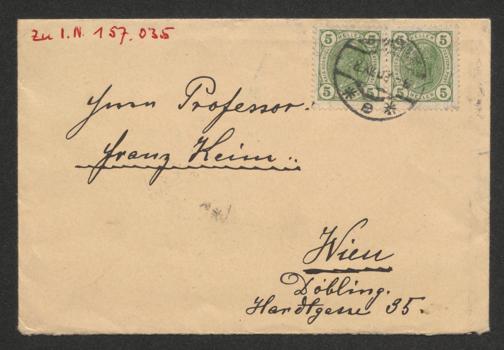 Zu I.N. 157.035
5 HELLER 5 5 HELLER 5
Herrn Professor
Franz Keim
Wien
Döbling.
Hardtgasse 35.